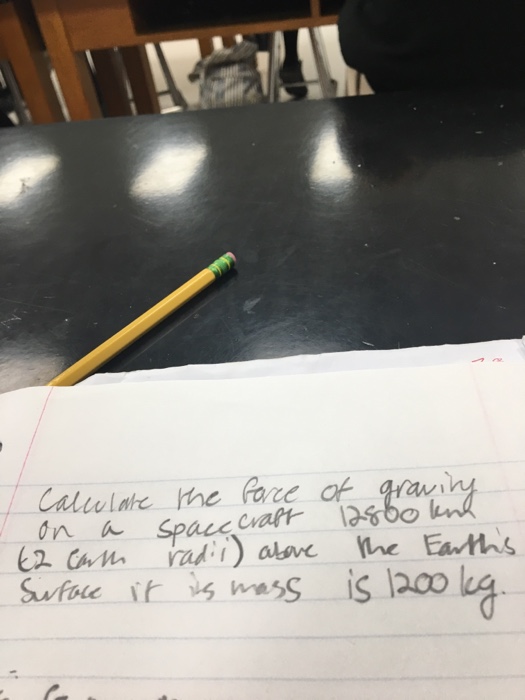 Calculate the force of gravity
on a spacecraft 12800 km
(2 Earth radii) above the Earth's
surface if its mass is 1200 kg.